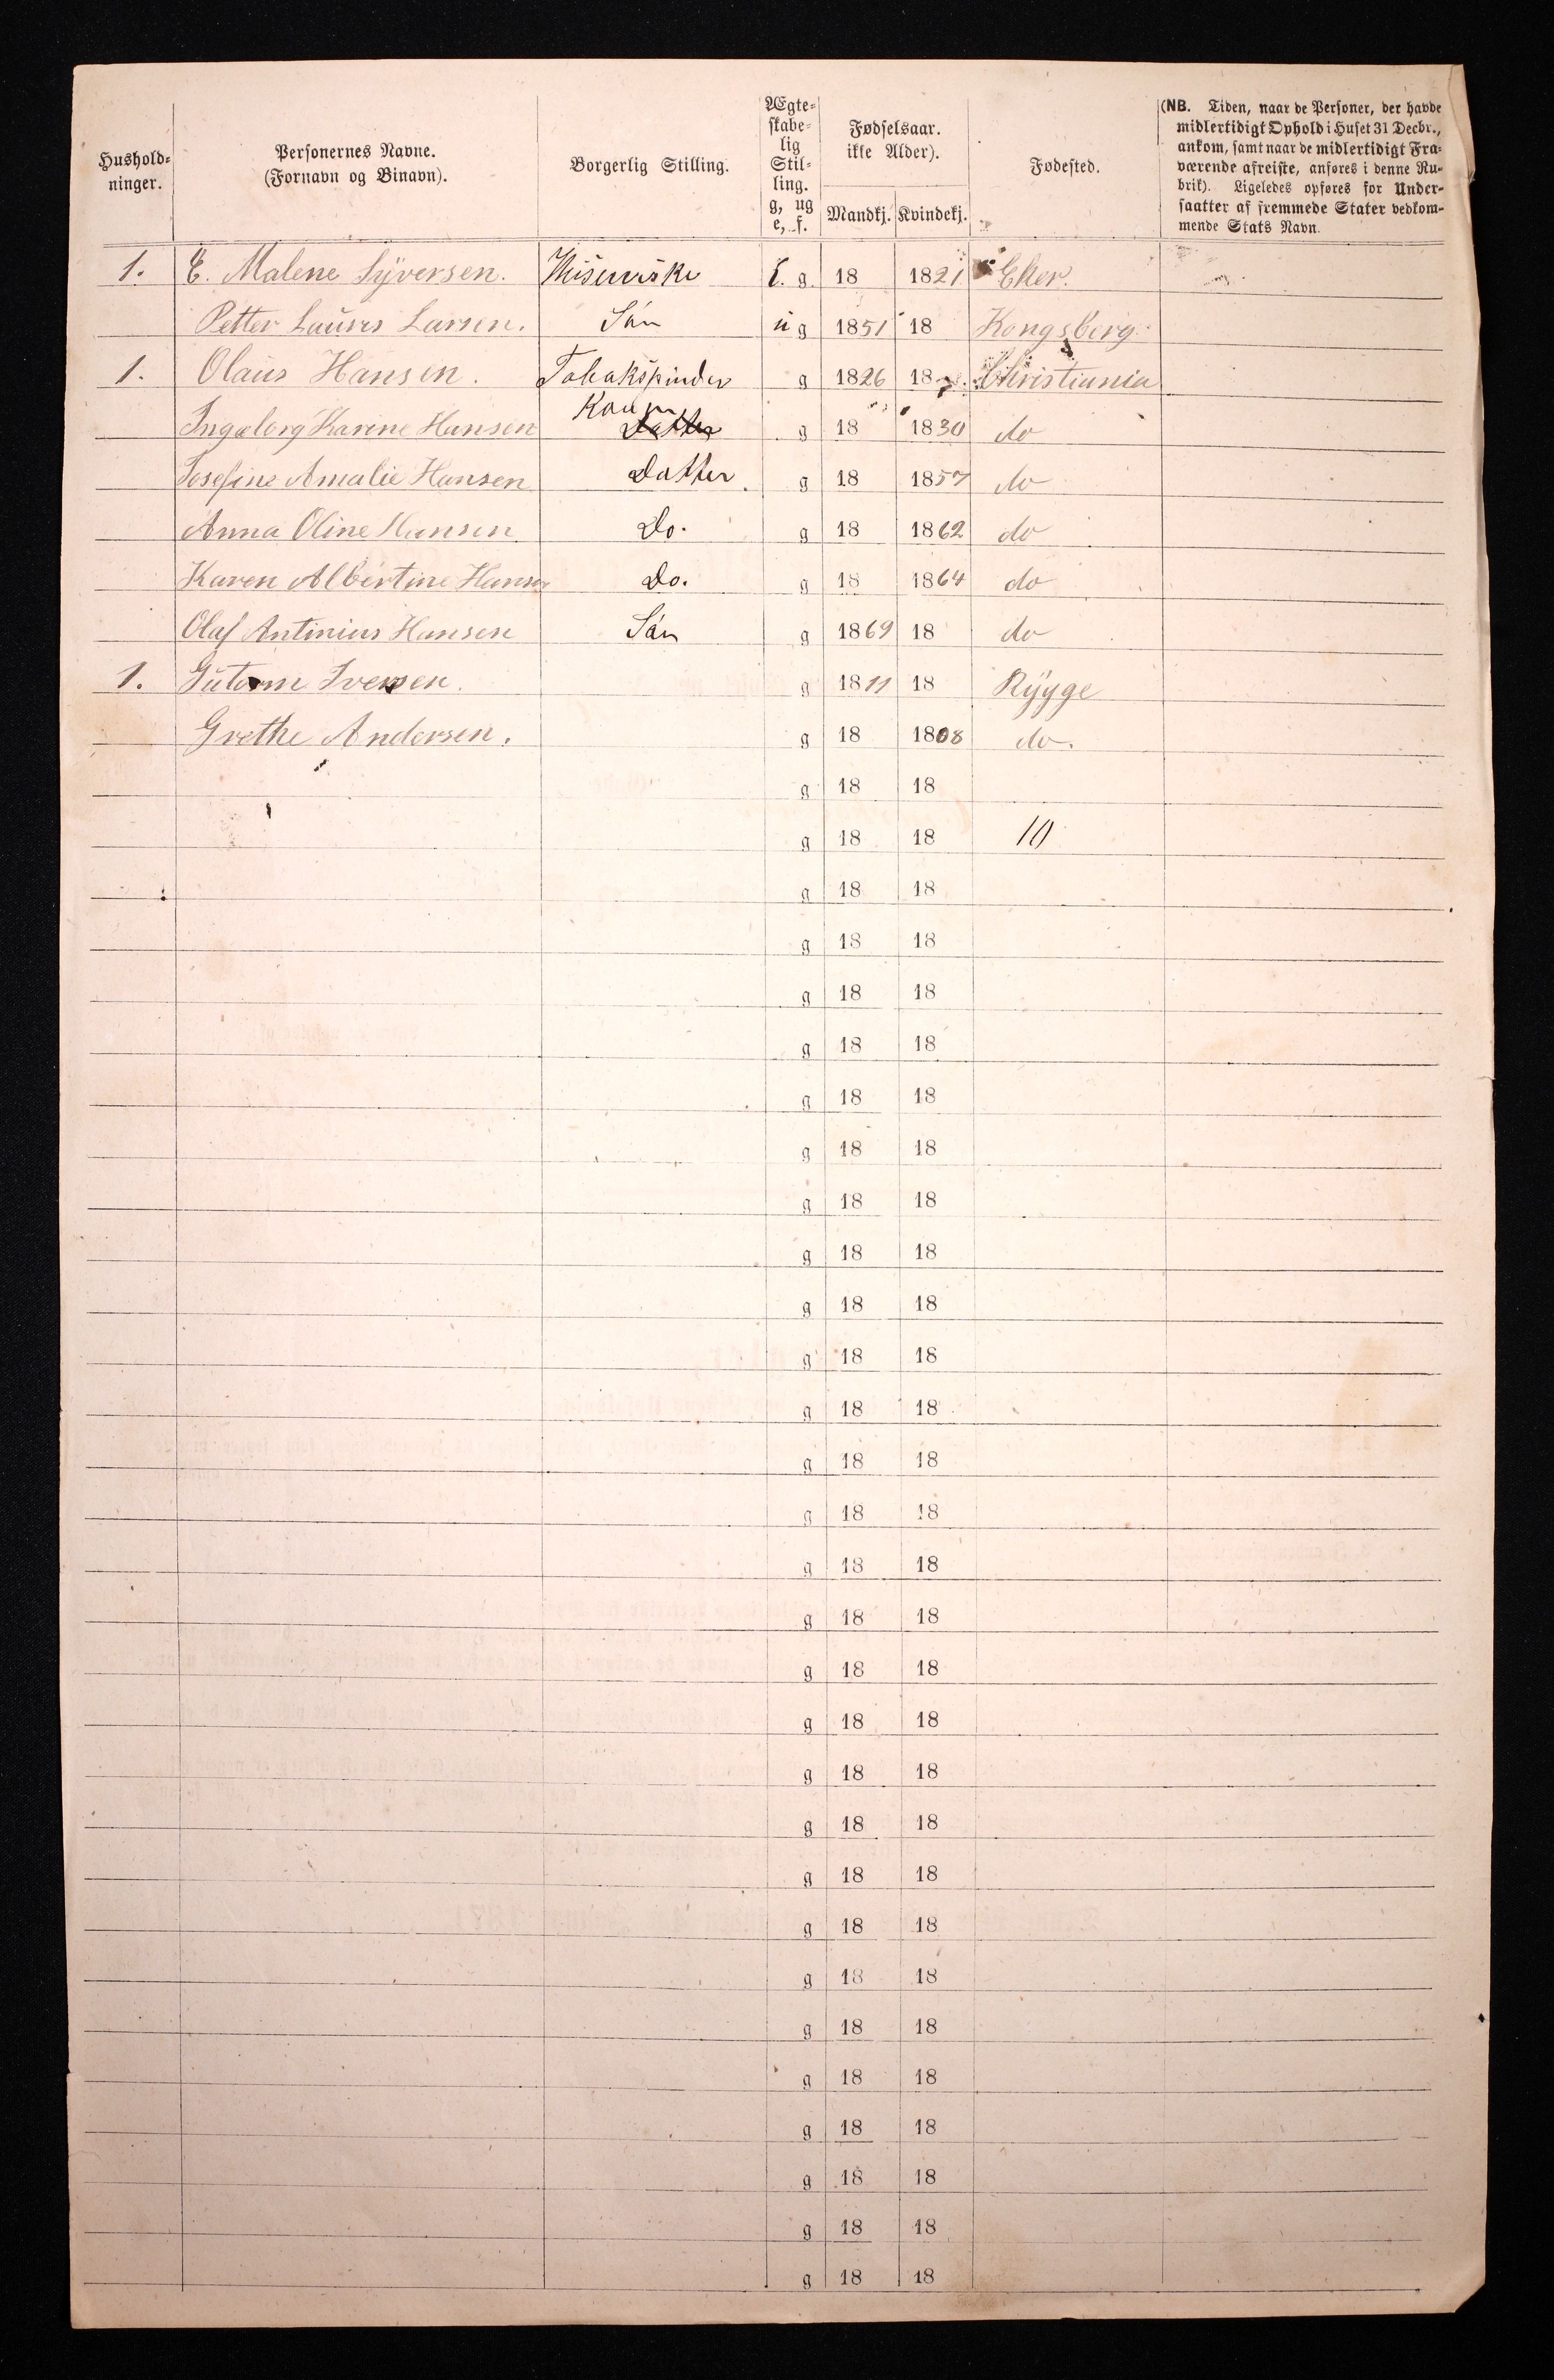 Hushold-
ninger.
Personernes Navne.
(Fornavn og Binavn).
Borgerlig Stilling.
Ægte-
skabe-
lig
Stil-
ling.
g, ug
e, f.
Fødselsaar.
ikke Alder).
Mandkj. Kvindekj.
Fødested.
(NB. Tiden, naar de Personer, der havde
midlertidigt Ophold i Huset 31 Decbr.,
ankom, samt naar de midlertidigt Fra-
værende afreiste, anføres i denne Ru-
brik). Ligeledes opføres for Under-
saatter af fremmede Stater vedkom-
mende Stats Navn.
1. E. Malene Syversen. E. g. 18 1821 Eker.
Petter Laurits Larsen. Søn u g 1851 18 Kongsberg.
1. Olaus Hansen. Tobakspinder g 1826 18 Christiania
Kone
Ingeborg Karine Hansen Datter g 18 1830 do
Josefine Amalie Hansen Datter g 18 1857 do
Anna Oline Hansen Do. g 18 1862 do
Karen Albertine Hansen Do. g 18 1864 do
Olaf Antinius Hansen Søn g 1869 18 do
1. Gutorm Iversen g 1811 18 Rygge
Grethe Andersen. g 18 1808 do.
g 18 18
g 18 18 10
g 18 18
g 18 18
g 18 18
g 18 18
g 18 18
g 18 18
g 18 18
g 18 18
g 18 18
g 18 18
g 18 18
g 18 18
g 18 18
g 18 18
g 18 18
g 18 18
g 18 18
g 18 18
g 18 18
g 18 18
g 18 18
g 18 18
g 18 18
g 18 18
g 18 18
g 18 18
g 18 18
g 18 18